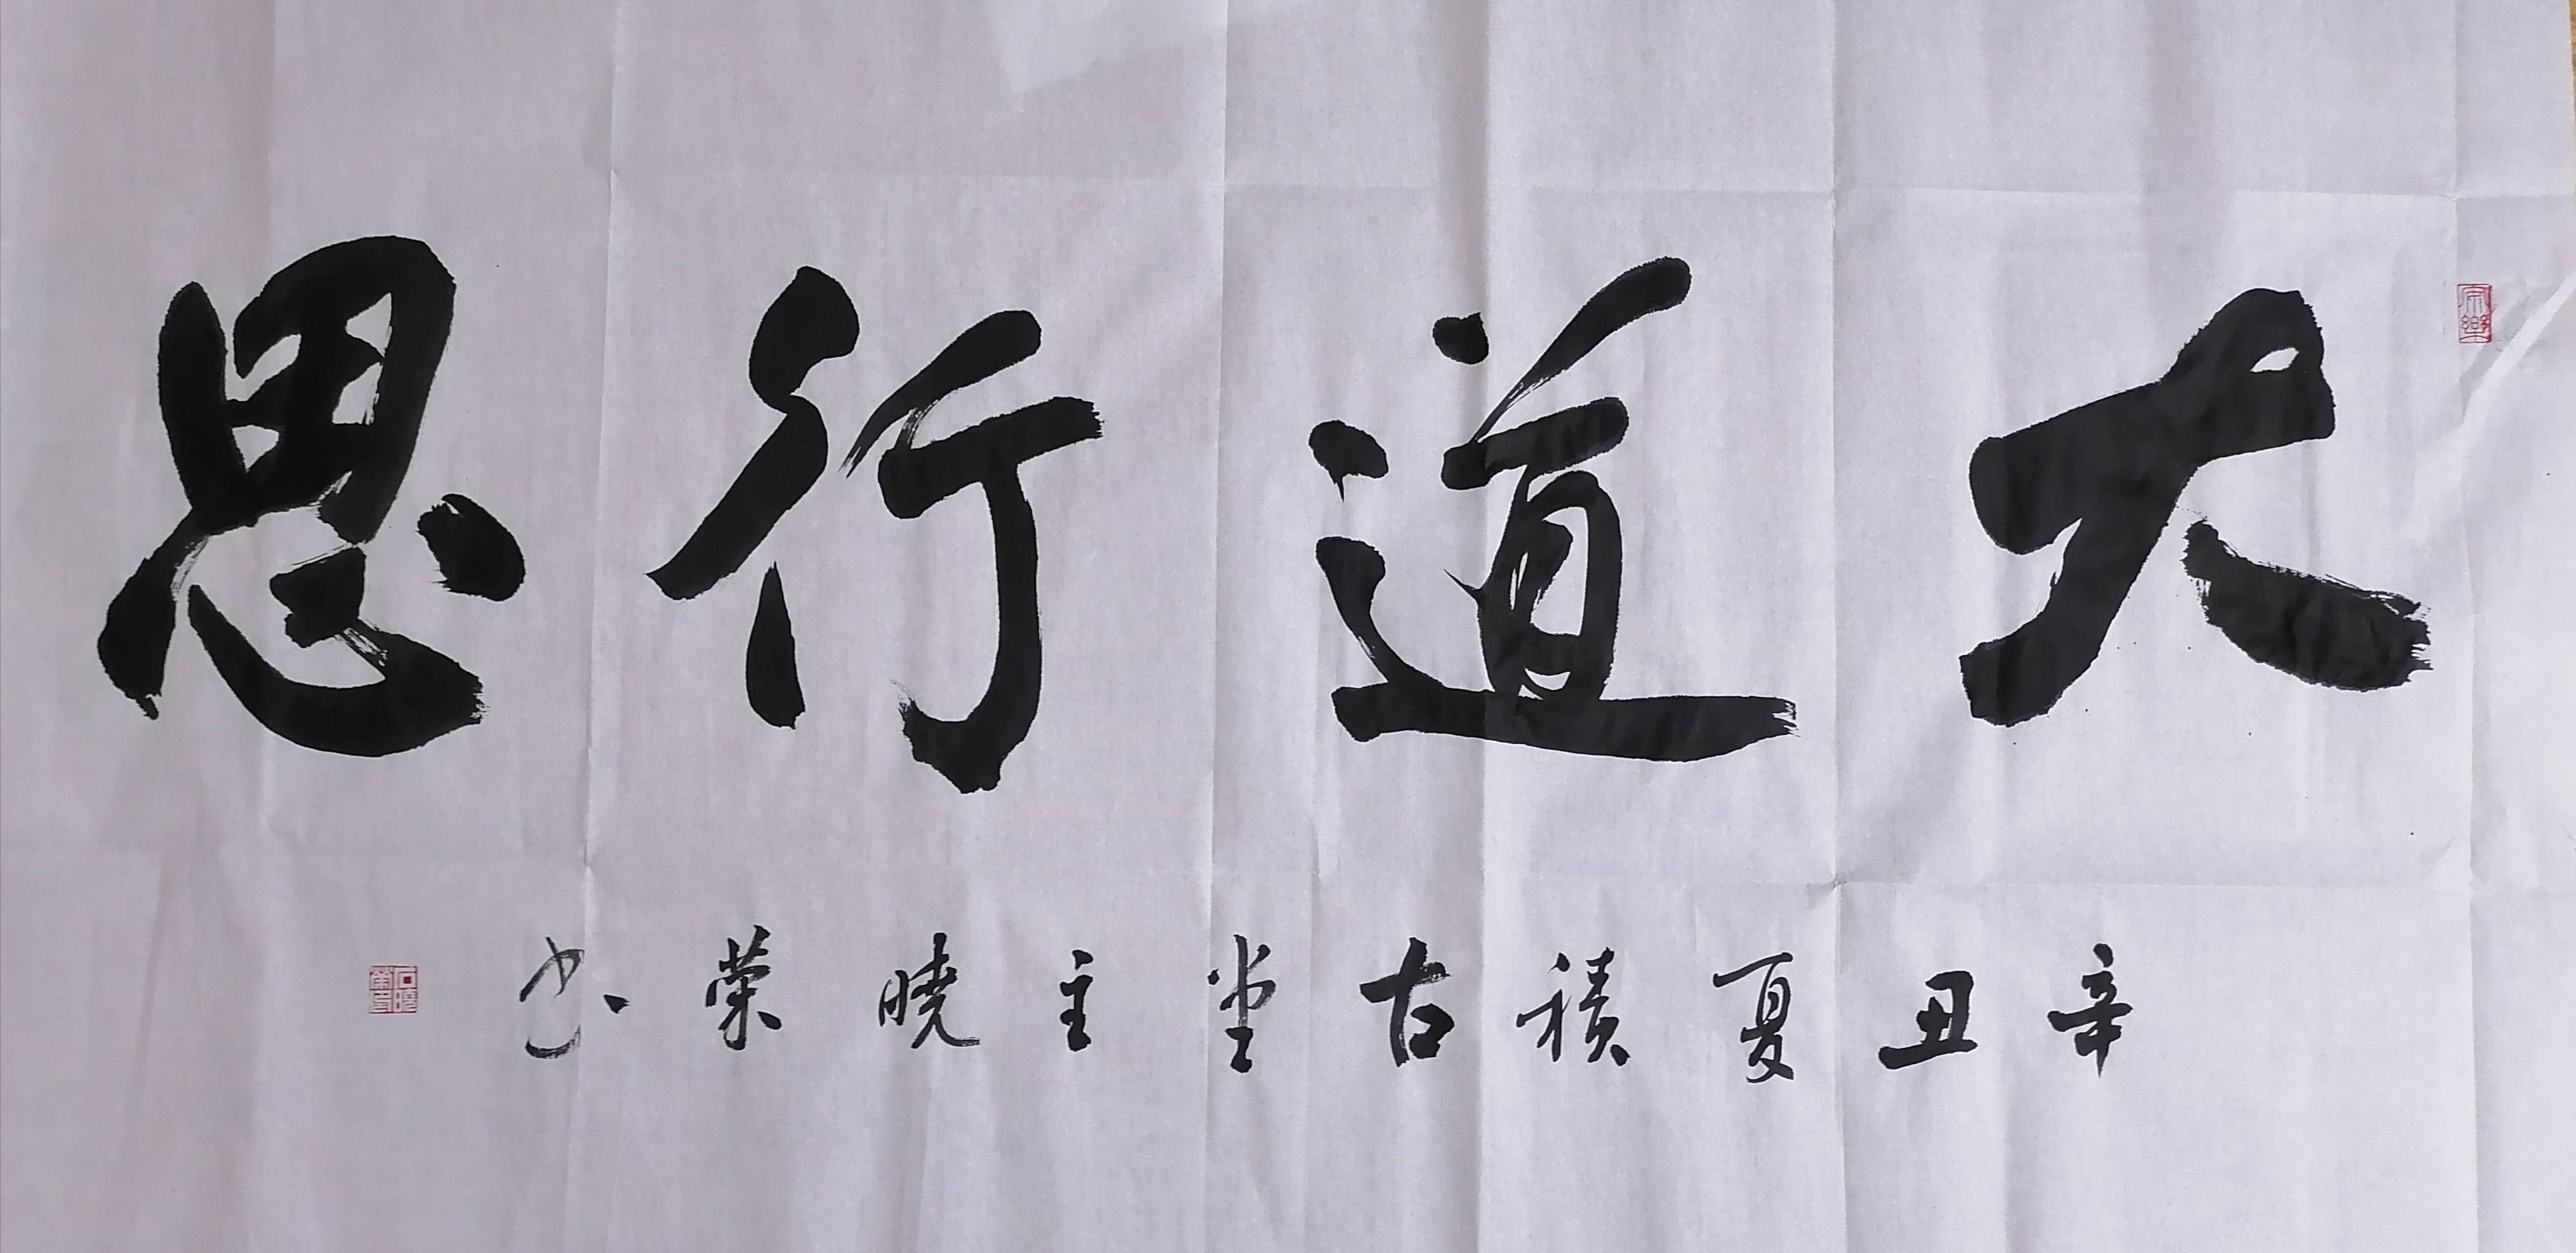 大道行思
辛丑夏積古堂主曉荣书